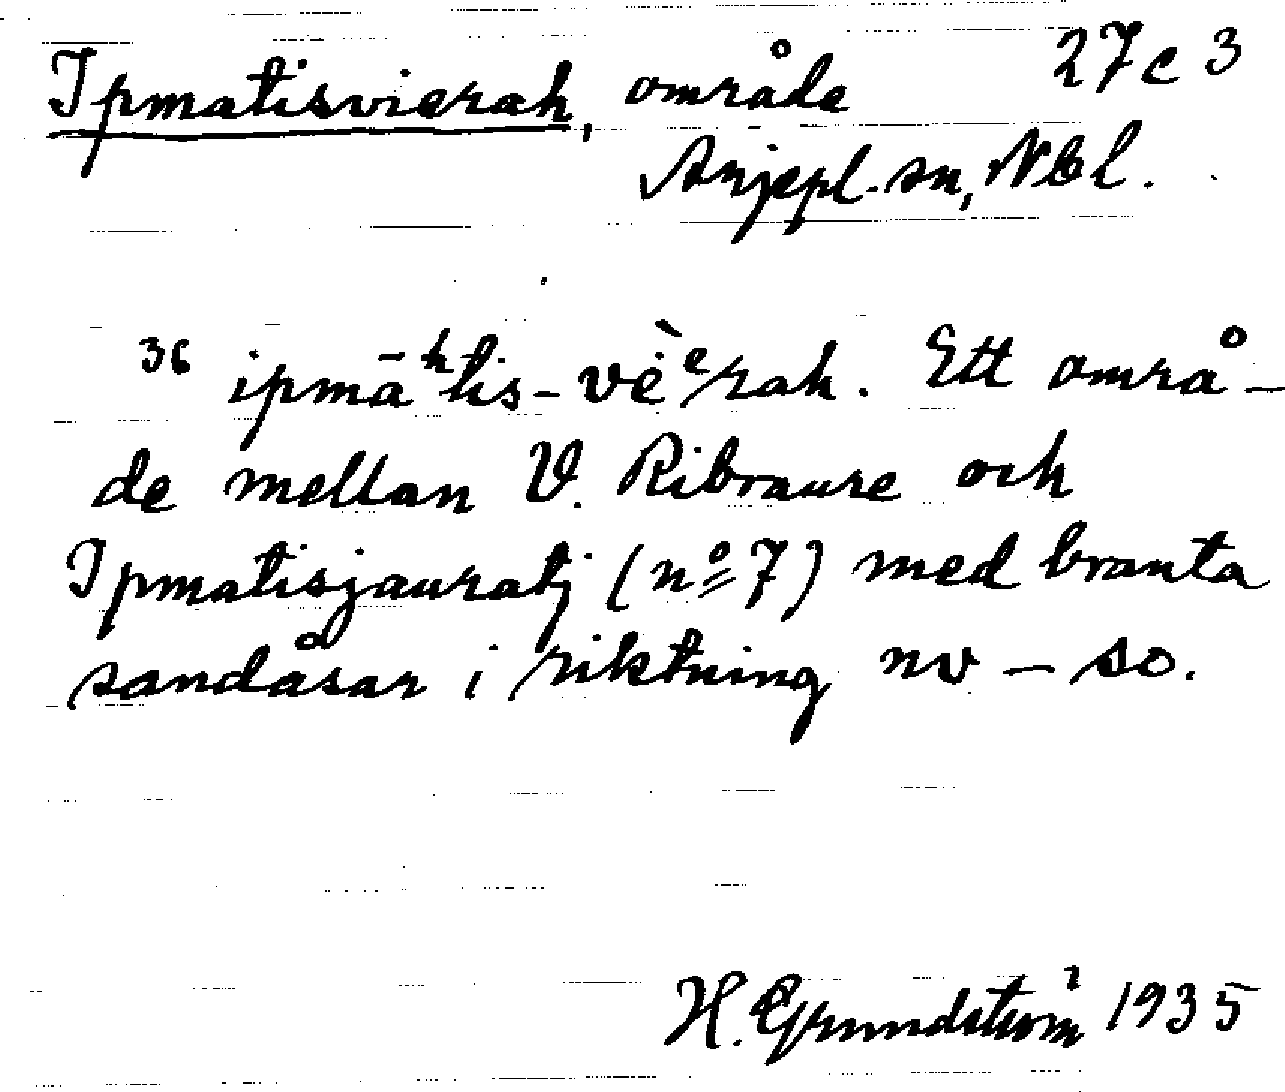 Ipmatisvierah, område 27c3
Arjepl. sn, Nbl.
36 ipmāʰtis-vèᵉrah. Ett områ-
de mellan V. Ribraure och
Ipmatisjauratj (nº 7) med branta
sandåsar i riktning nv – so.
H. Grundström 1935